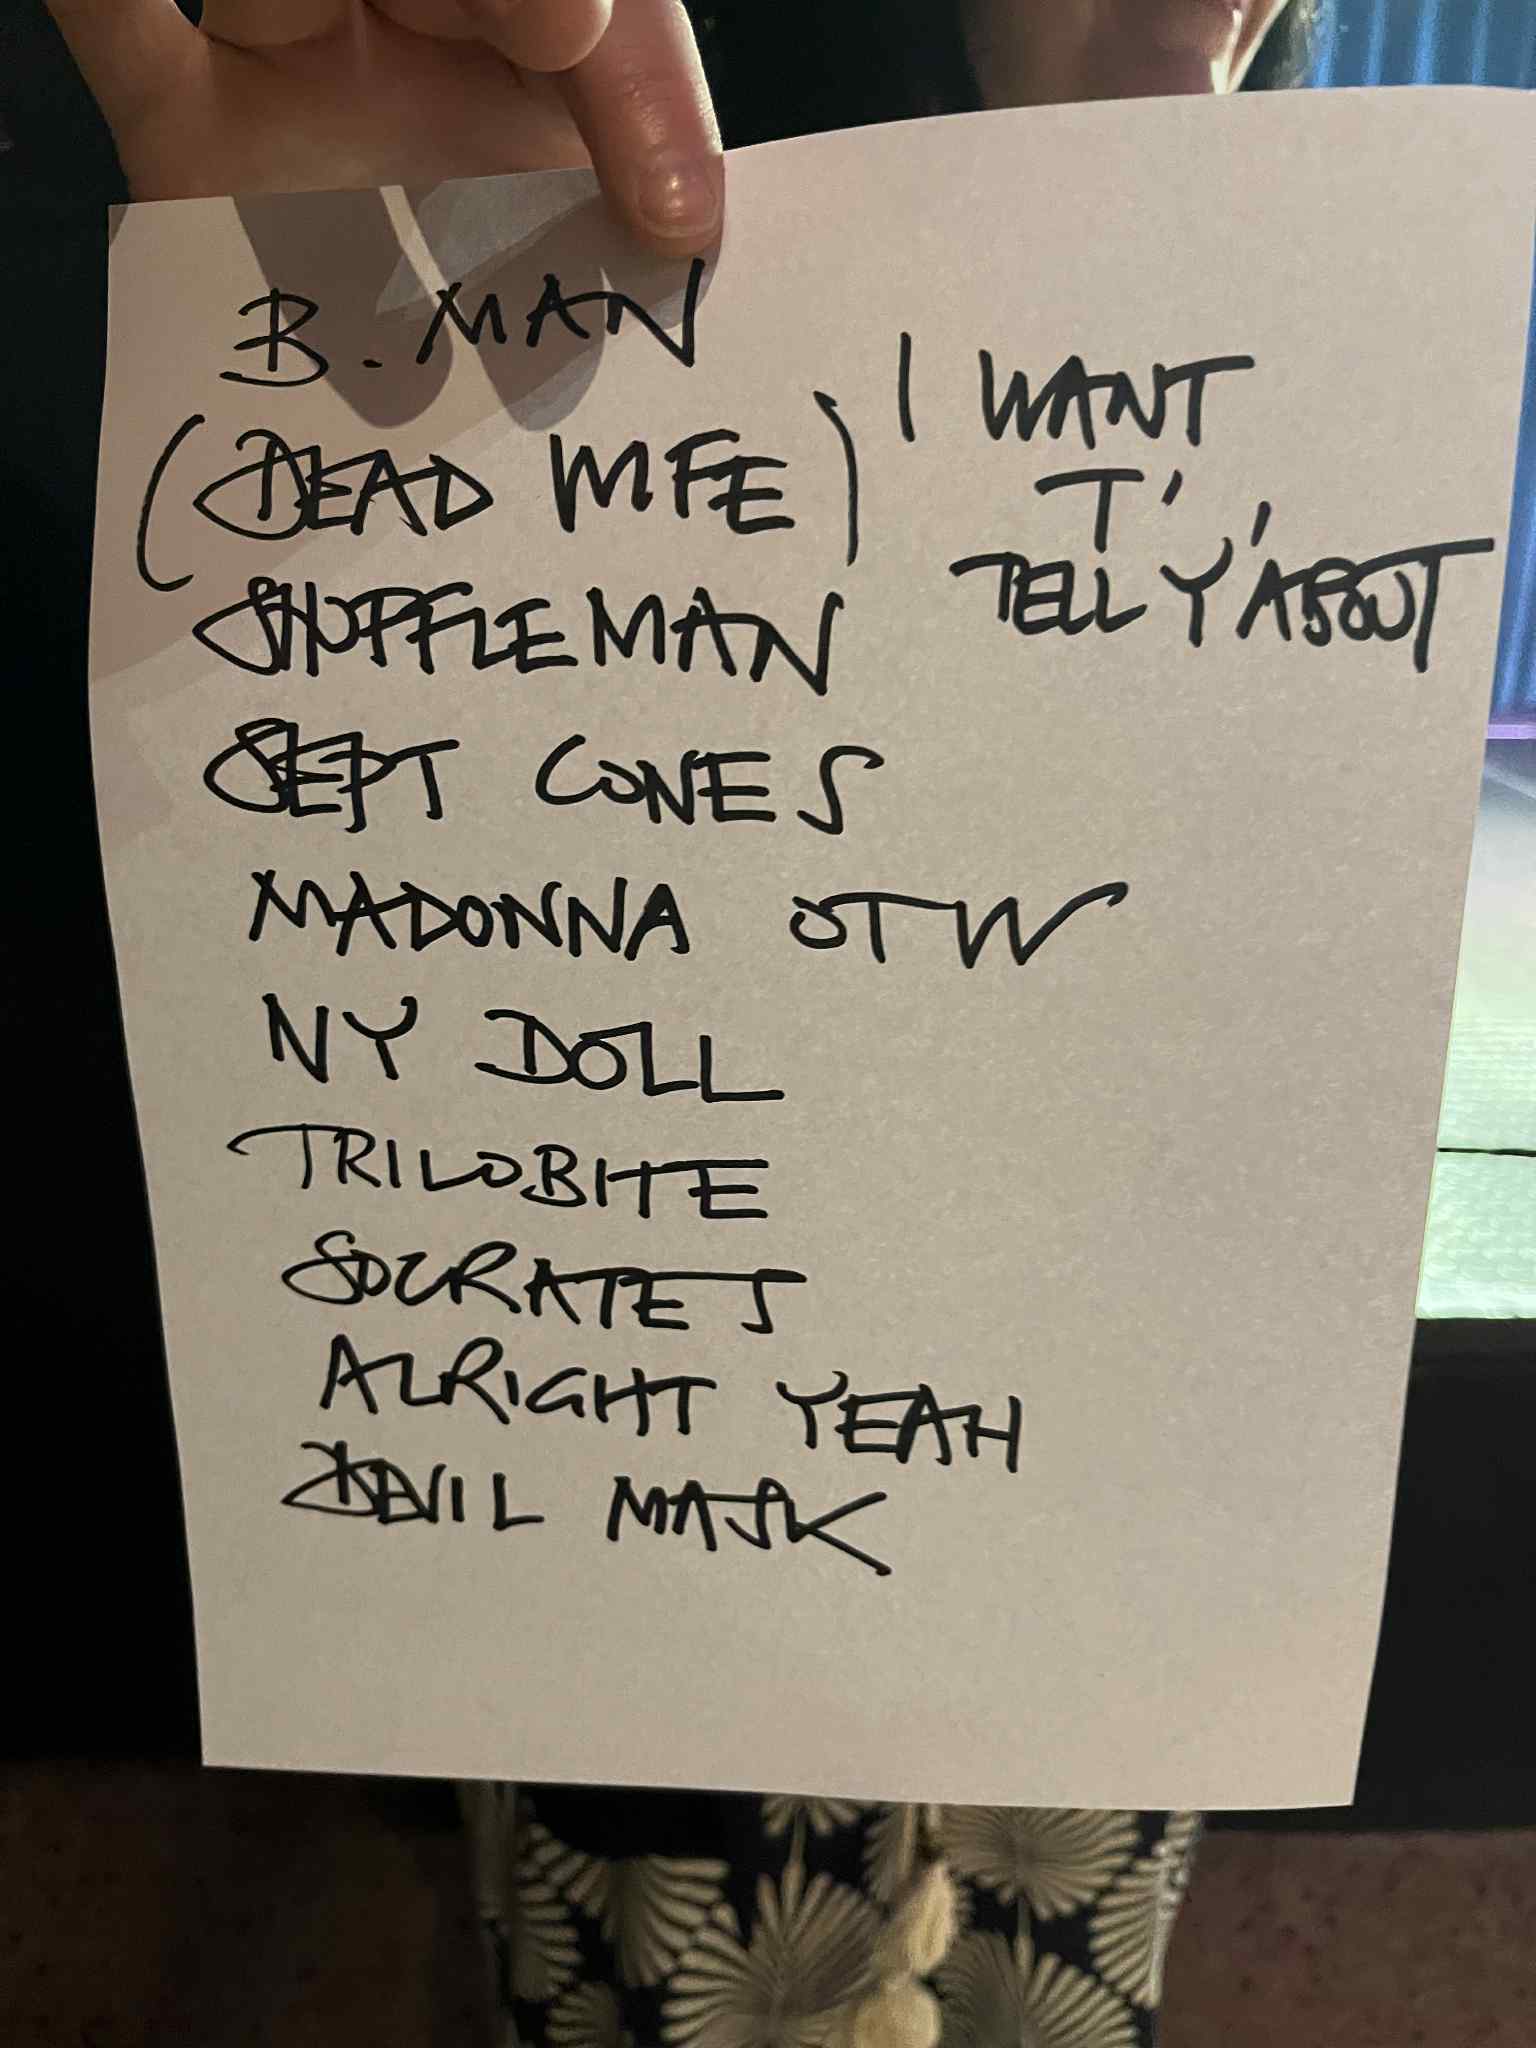 B. MAN
(DEAD WIFE)
SHUFFLEMAN
SEPT CONES
MADONNA OTW
NY DOLL
TRILOBITE
SOCRATES
ALRIGHT YEAH
DEVIL MASK
I WANT
T'
TELL Y'ABOUT